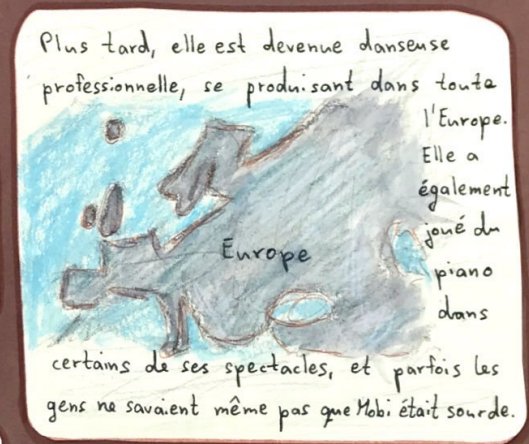 Plus tard, elle est devenue danseuse
professionnelle, se produisant dans toute
l'Europe.
Elle a
également
joué du
piano
dans
Europe
certains de ses spectacles, et parfois les
gens ne savaient même pas que Mobi était sourde.